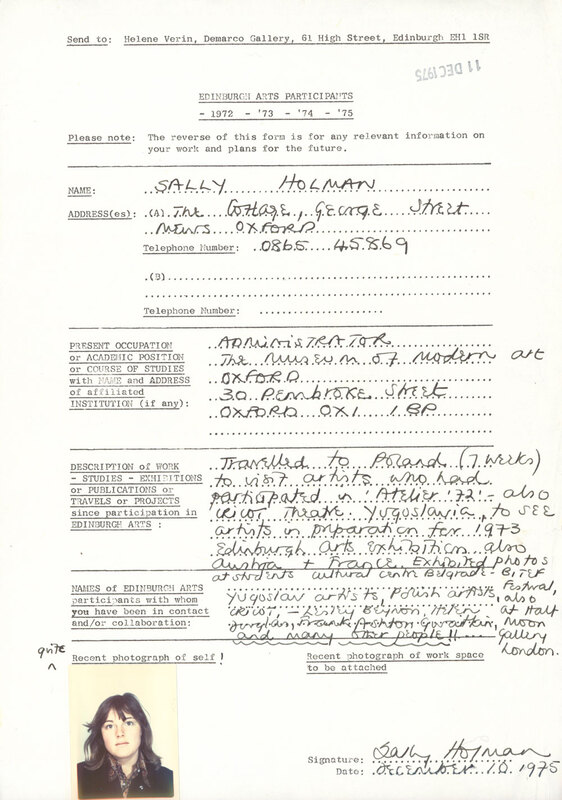 Send to: Helene Verin, Demarco Gallery, 61 High Street, Edinburgh EH1 1SR
11 DEC 1975
EDINBURGH ARTS PARTICIPANTS
- 1972 - '73 - '74 - '75
Please note: The reverse of this form is for any relevant information on
your work and plans for the future.
NAME: SALLY HOLMAN
ADDRESS(es): (A) The Cottage, George Street
Mews OXFORD
Telephone Number: 0865 45869
(B)
Telephone Number:
PRESENT OCCUPATION
or ACADEMIC POSITION
or COURSE OF STUDIES
with NAME and ADDRESS
of affiliated
INSTITUTION (if any):
ADMINISTRATOR
The Museum of Modern art
OXFORD
30 Pembroke Street
OXFORD OX1 1BP
DESCRIPTION of WORK
- STUDIES - EXHIBITIONS
or PUBLICATIONS or
TRAVELS or PROJECTS
since participation in
EDINBURGH ARTS :
Travelled to Poland (7 weeks)
to visit artists who had
participated in 'Atelier '72' - also
Cricot Theatre. Yugoslavia, to SEE
artists in preparation for 1973
Edinburgh Arts exhibition also
Austria + France. Exhibited photos
at students cultural centre Belgrade - BITEF
Festival, also
at Half
Moon
Gallery
London.
NAMES OF EDINBURGH ARTS
participants with whom
you have been in contact
and/or collaboration:
Yugoslav artists, Polish artists,
Cricot, - Lesley Benyon,
Frank Ashton
and many other people!!
quite
Recent photograph of self !
Recent photograph of work space
to be attached
Signature: Sally Holman
Date: DECEMBER 10 1975